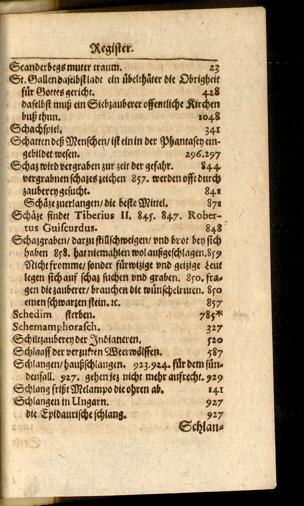 Register.
Scanderbegs muter traum. 23
St. Gallen daselbst ladt ein übelthäter die Obrigheit
für Gottes gericht. 428
daselbst muß ein Siebzauberer offentliche Kirchen
buß thun. 1048
Schachspiel. 341
Schatten deß Menschen/ ist ein in der Phantasey ein-
gebildet wesen. 296.297
Schaz wird vergraben zur zeit der gefahr. 844
vergrabnen schazes zeichen 857. werden offt durch
zauberey gesucht. 841
Schäze zuerlangen/ die beste Mittel. 871
Schäze findet Tiberius II. 845. 847. Rober-
tus Guiscurdus. 848
Schazgraben/ darzu stillschweigen/ und brot bey sich
haben 858. hat niemahlen wol außgeschlagen. 859
Nicht fromme/ sonder fürwizige und geizige Leut
legen sich auf schaz suchen und graben. 850. fra-
gen die zauberer/ brauchen die wünschelruten. 850
einen schwarzen stein. ꝛc. 857
Schedim sterben. 785*
Schemamphorasch. 327
Schiltzauberey der Indianeren. 520
Schlaaff der verzukten Weerwölffen. 587
Schlangen/ haußschlangen. 923.924. für dem sün-
denfall. 927. gehen jez nicht mehr aufrecht. 929
Schlang frißt Melampo die ohren ab. 141
Schlangen in Ungarn. 927
die Epidaurische schlang. 927
Schlan-